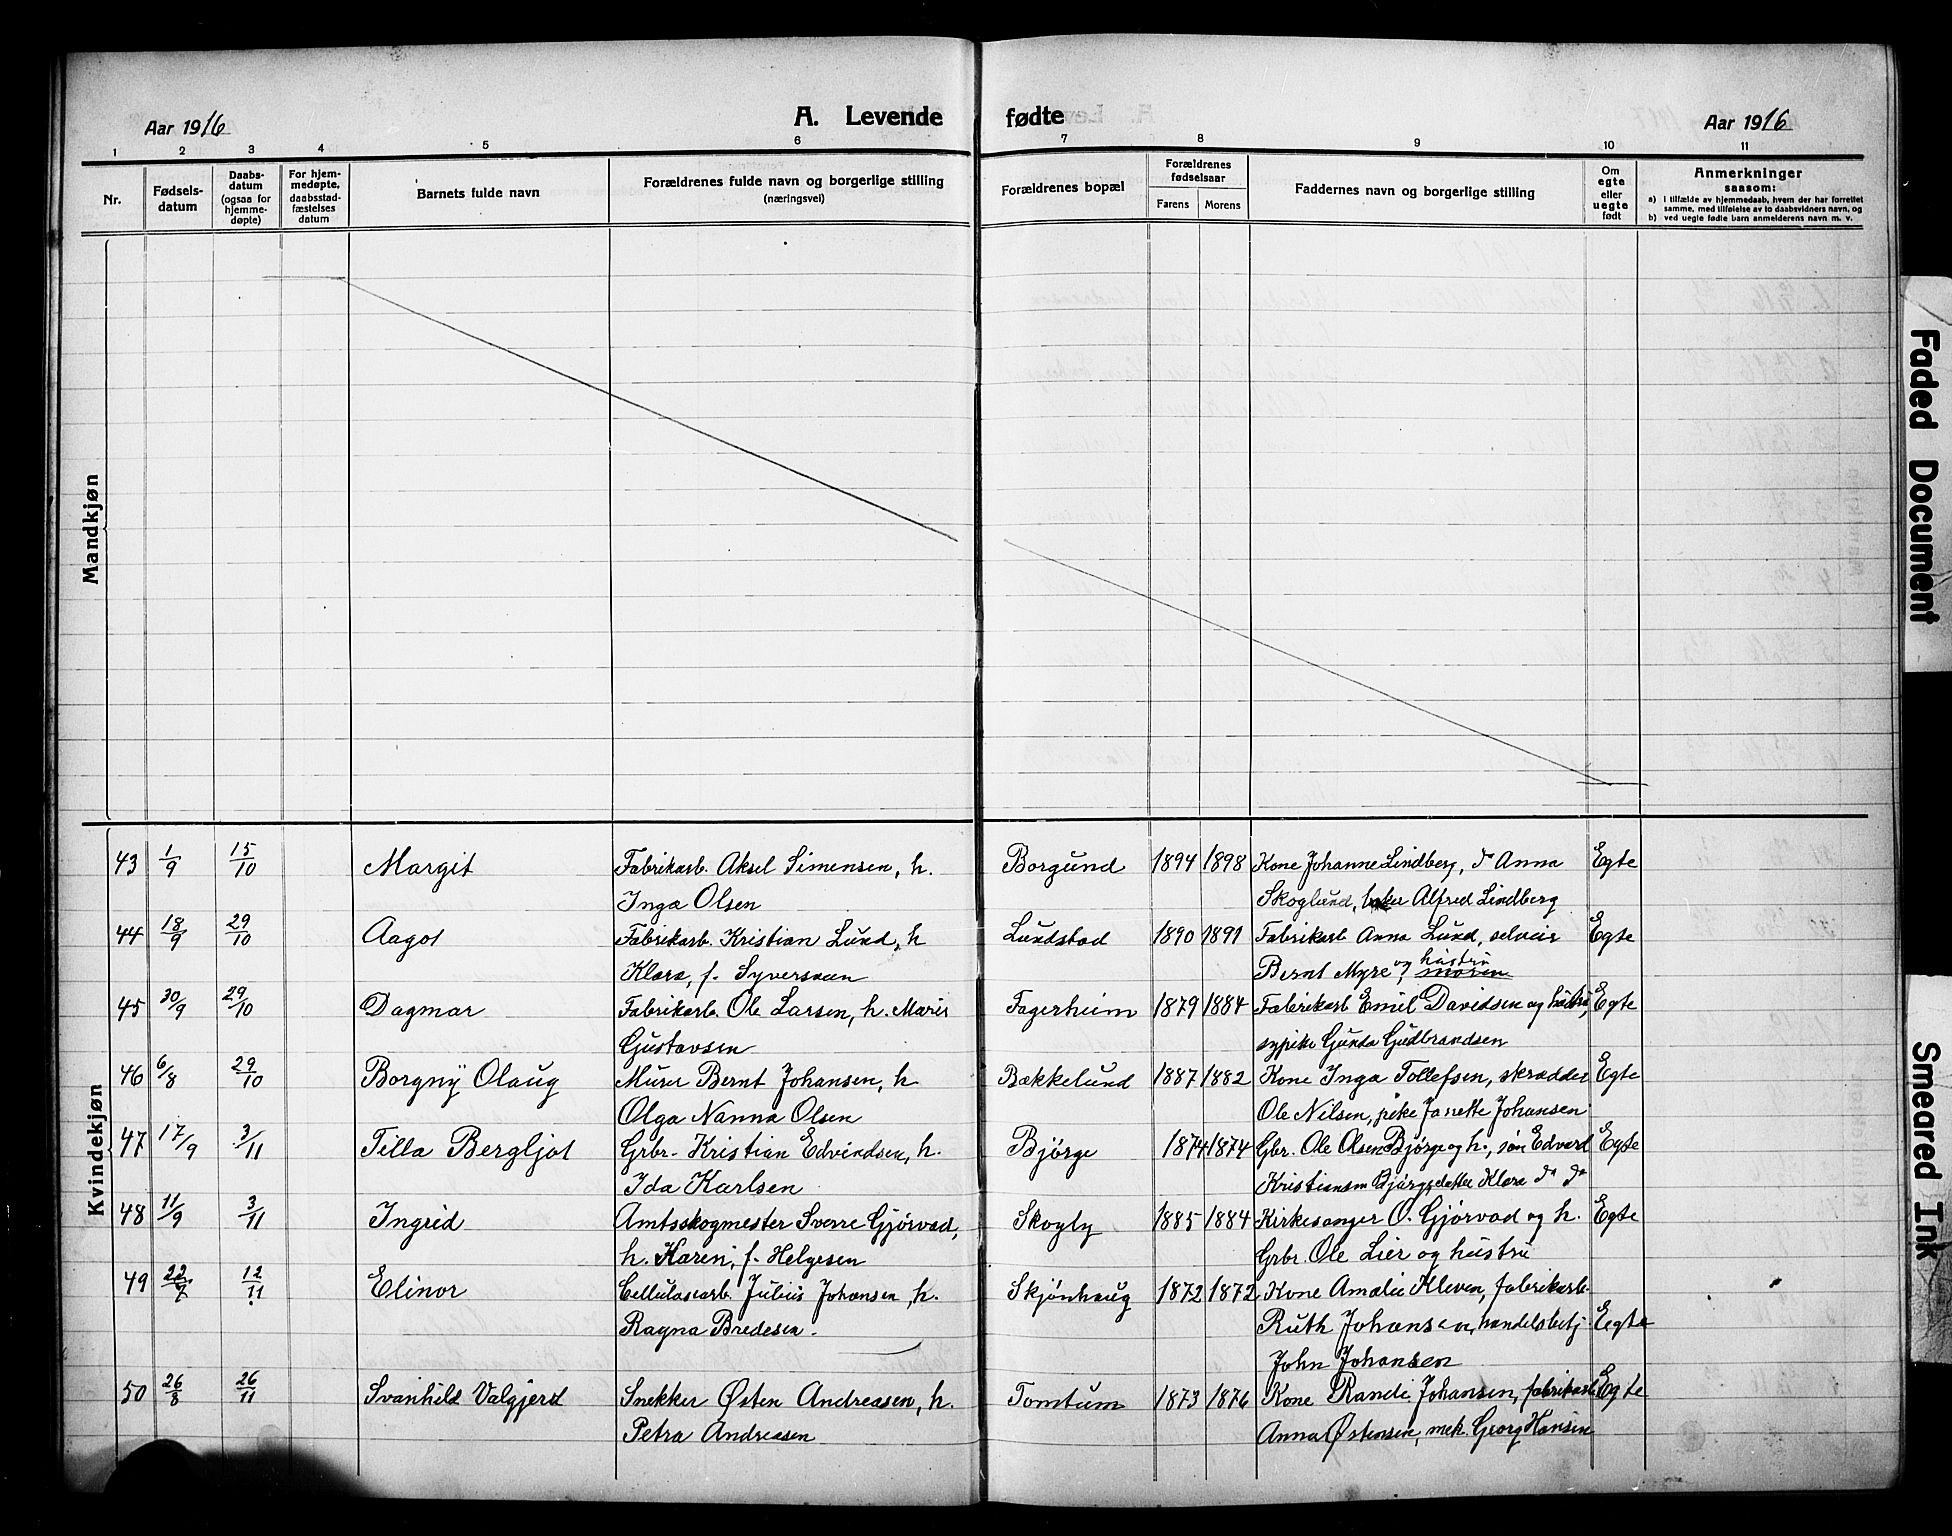 Aar 1916
A. Levende
fødte
Aar 1916
1 2 3 4 5 6 7 8 9 10 11
Nr.
Fødsels-
datum
Daabs-
datum
(ogsaa for
hjemme-
døpte)
For hjem-
medøpte,
daabsstad-
fæstelses
datum
Barnets fulde navn
Forældrenes fulde navn og borgerlige stilling
(næringsvei)
Forældrenes bopæl
Forældrenes
fødselsaar
Farens Morens
Faddernes navn og borgerlige stilling
Om
egte
eller
uegte
født
Anmerkninger
saasom:
a) i tilfælde av hjemmedaab, hvem der har forrettet
samme, med tilføielse av to daabsvidners navn, og
b) ved uegte fødte barn anmelderens navn m. v.
Mandkjøn
Kvindekjøn
43 1/9 15/10 Margit Fabrikarb. Aksel Simensen, h. Borgund 1894 1898 Kone Johanne Lindberg, do Anna Egte
Inga Olsen Skoglund, baker Alfred Lindberg
44 18/9 29/10 Aagot Fabrikarb. Kristian Lund, h Lundstad 1890 1891 Fabrikarb Anna Lund, selveier Egte
Klara, f. Syversen Bernt Myre og hustru moren
45 30/9 29/10 Dagmar Fabrikarb. Ole Larsen, h. Marie Fagerheim 1879 1884 Fabrikarb Emil Davidsen og hustru, Egte
Gustavsen sypike Gunda Gudbrandsen
46 6/8 29/10 Borgny Olaug Murer Bernt Johansen, h Bækkelund 1887 1882 Kone Inga Tollefsen, skrædder Egte
Olga Nanna Olsen Ole Nilsen, pike Janette Johansen
47 17/9 3/11 Tilla Bergljot Grbr. Kristian Edvindsen, h. Bjørge 1874 1874 Gbr. Ole Olsen Bjørge og h., søn Edvard Egte
Ida Karlsen Kristiansen Bjørge, datter Klara do do
48 11/9 3/11 Ingrid Amtsskogmester Sverre Gjørvad, Skogly 1885 1884 Kirkesanger O. Gjørvad og h. Egte
h. Karen, f. Helgesen Grbr. Ole Lier og hustru
49 22/7 12/11 Elinor Cellulosearb. Julius Johansen, h. Skjønhaug 1872 1872 Kone Amalie Kleven, fabrikarb.
Ragna Bredesen. Ruth Johansen, handelsbetj. Egte
John Johansen
50 26/8 26/11 Svanhild Valgjerd Snekker Østen Andreasen, h. Tomtum 1873 1876 Kone Randi Johansen, fabrikarb Egte
Petra Andreasen Anna Østensen, mek. Georg Hansen
Faded Document
Smeared Ink